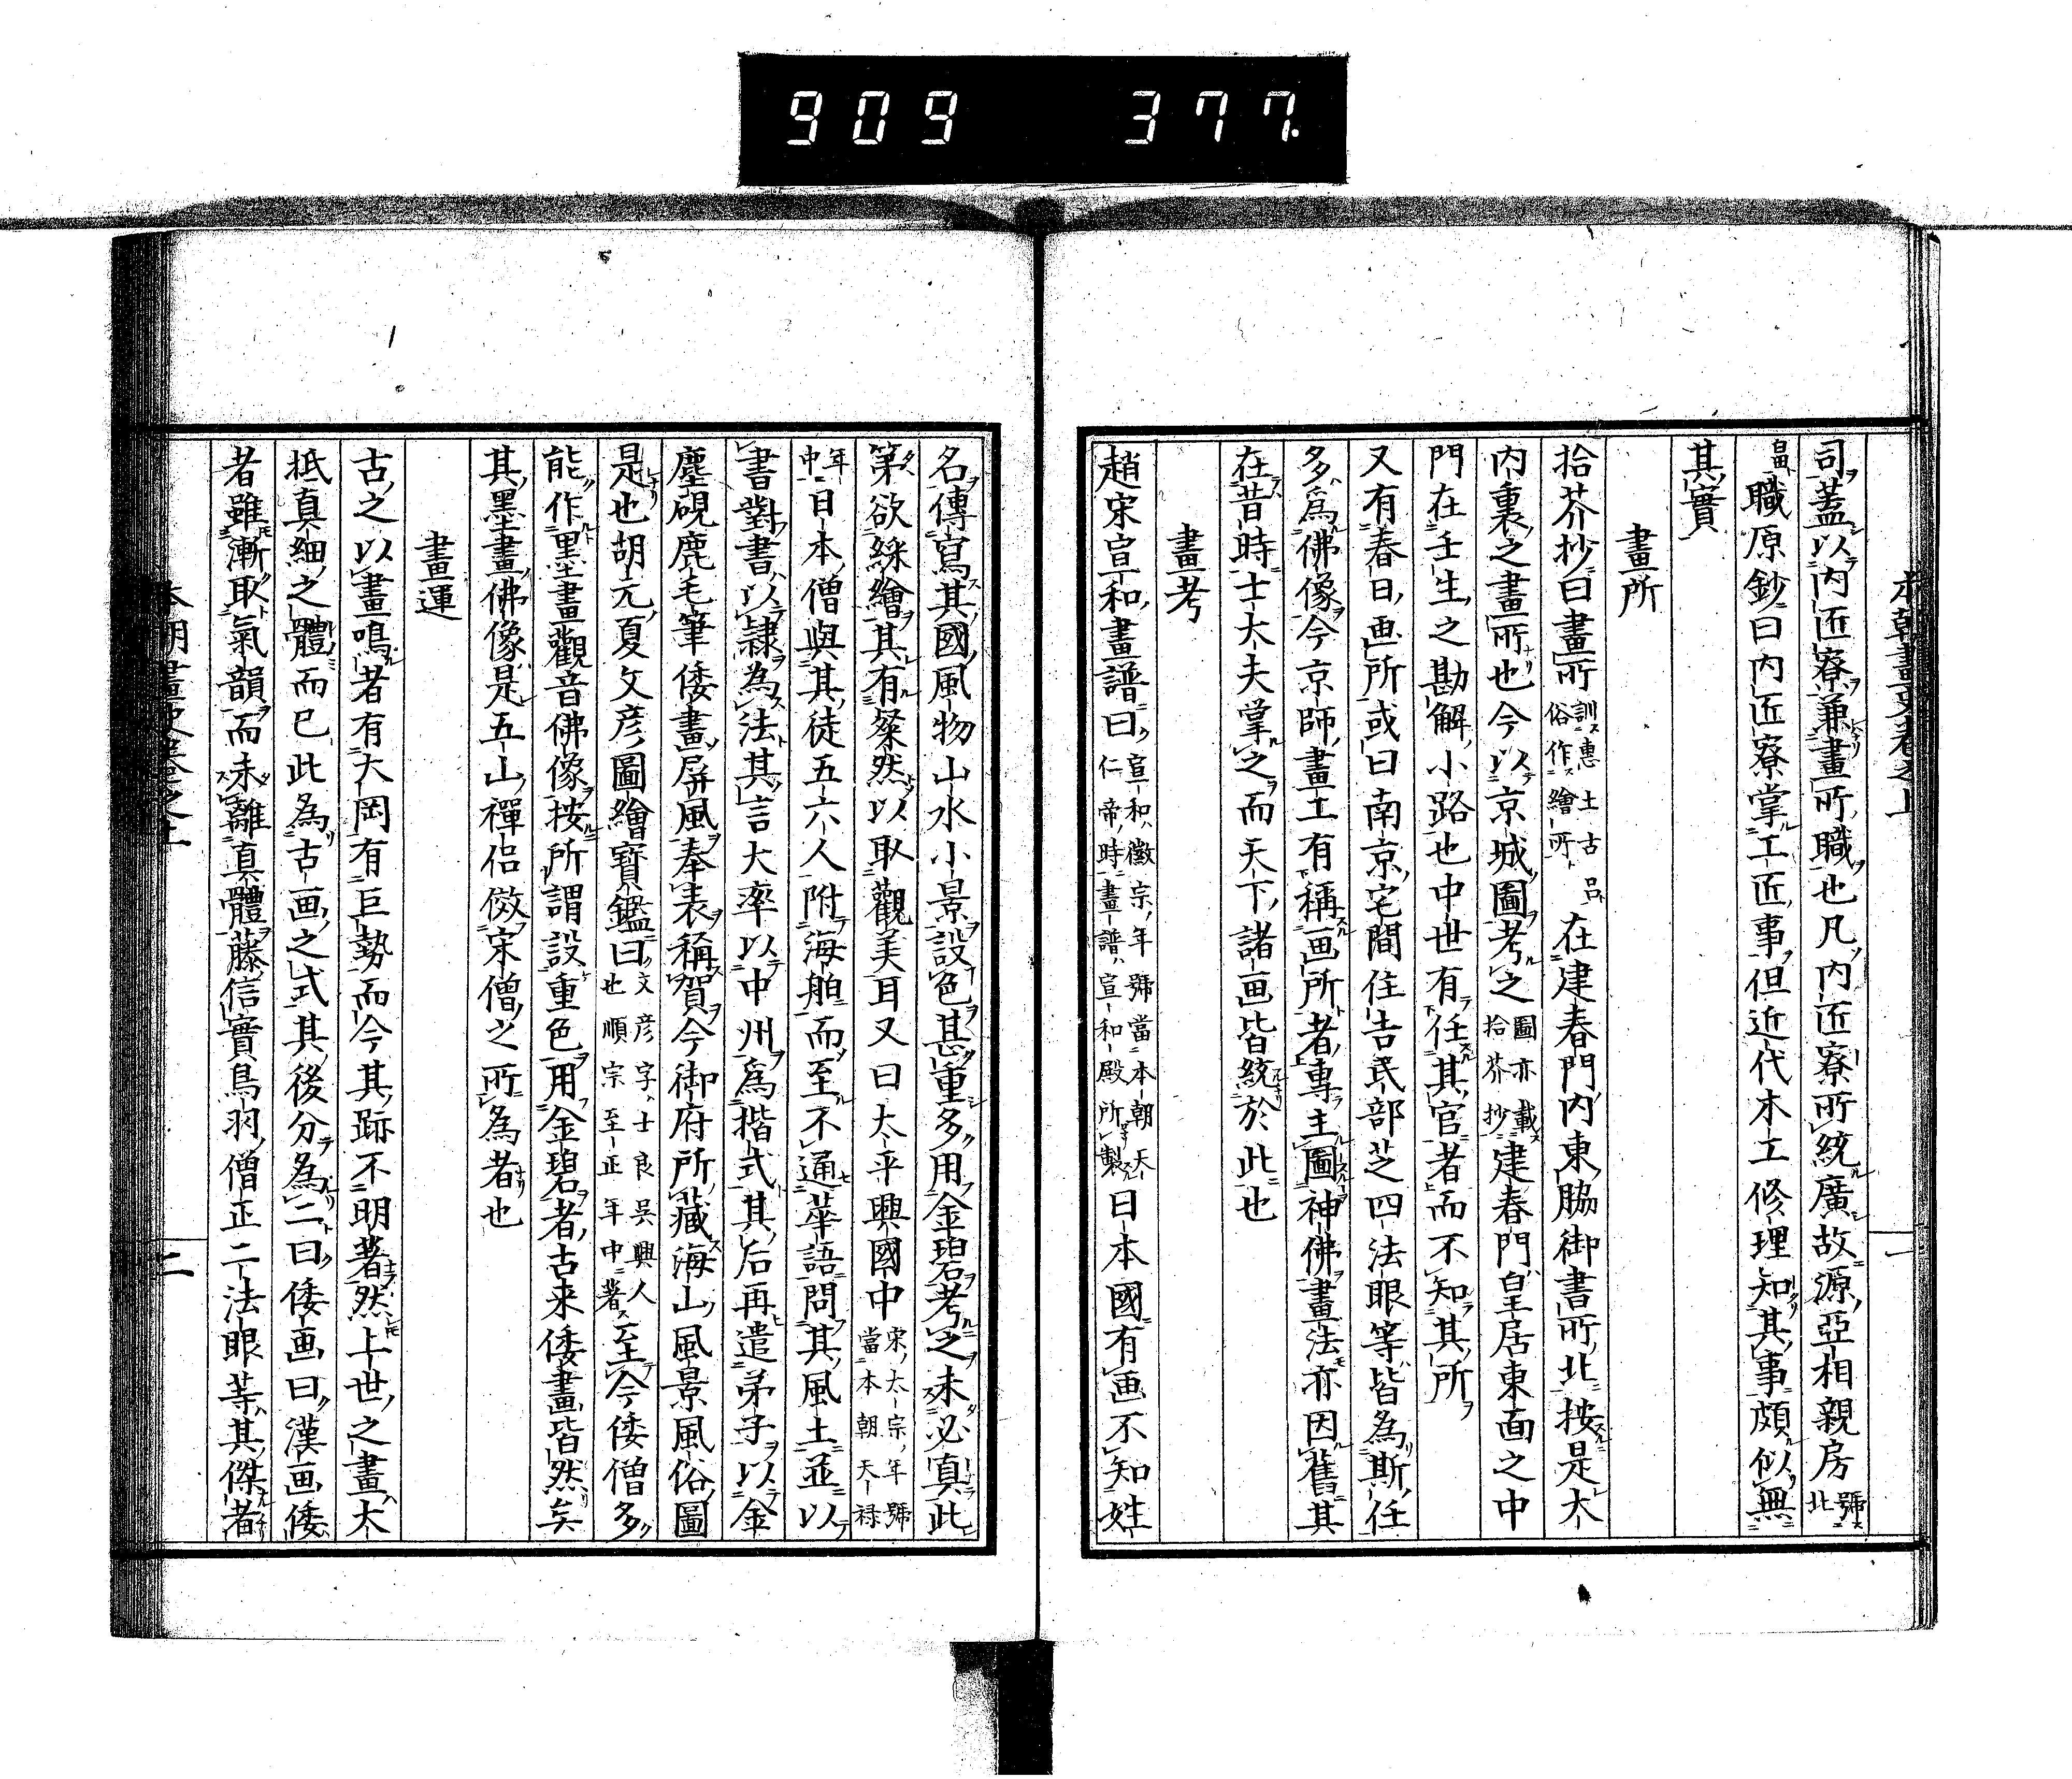 909 377.
本朝畫史卷之上
一
司蓋以内匠寮兼畫所職也凡内匠寮所統廣故源亞相親房號北
畠職原鈔曰内匠寮掌工匠事但近代木工修理知其事頗似無
其實
畫所
拾芥抄曰畫所訓惠土古呂俗作繪所在建春門内東脇御書所北按是大
内裏之畫所也今以京城圖考之圖亦載拾芥抄建春門皇居東面之中
門在壬生之勘解小路也中世有任其官者而不知其所
又有春日画所或曰南京宅間住吉民部芝四法眼等皆為斯任
多爲佛像今京師畫工有稱画所者專主圖神佛畫法亦因舊其
在昔時士大夫掌之而天下諸画皆統於此也
畫考
趙宋宣和畫譜曰宣和徽宗年號當本朝天仁帝時畫譜宣和殿所製日本國有画不知姓
名傳寫其國風物山水小景設色甚重多用金碧考之未必真此
第欲綵繪其有粲然以取觀美耳又曰太平興國中宋太宗年號當本朝天禄
年中日本僧與其徒五六人附海舶而至不通華語問其風土並以
書對書以隷為法其言大率以中州爲揩式其后再遣弟子以金
塵硯鹿毛筆倭畫屏風奉表稱賀今御府所藏海山風景風俗圖
是也胡元夏文彦圖繪寳鑑曰文彦字士良吳興人也順宗至正年中著至今倭僧多
能作墨畫觀音佛像按所謂設重色用金碧者古来倭畫皆然矣
其墨畫佛像是五山禪侶傚宋僧之所為者也
畫運
古之以畫鳴者有大岡有巨勢而今其跡不明著然上世之畫大
抵真細之體而已此為古画之式其後分為二曰倭画曰漢画倭
者雖漸取氣韻而未離真體藤信實鳥羽僧正二法眼等其傑者
本朝畫史卷之上
二